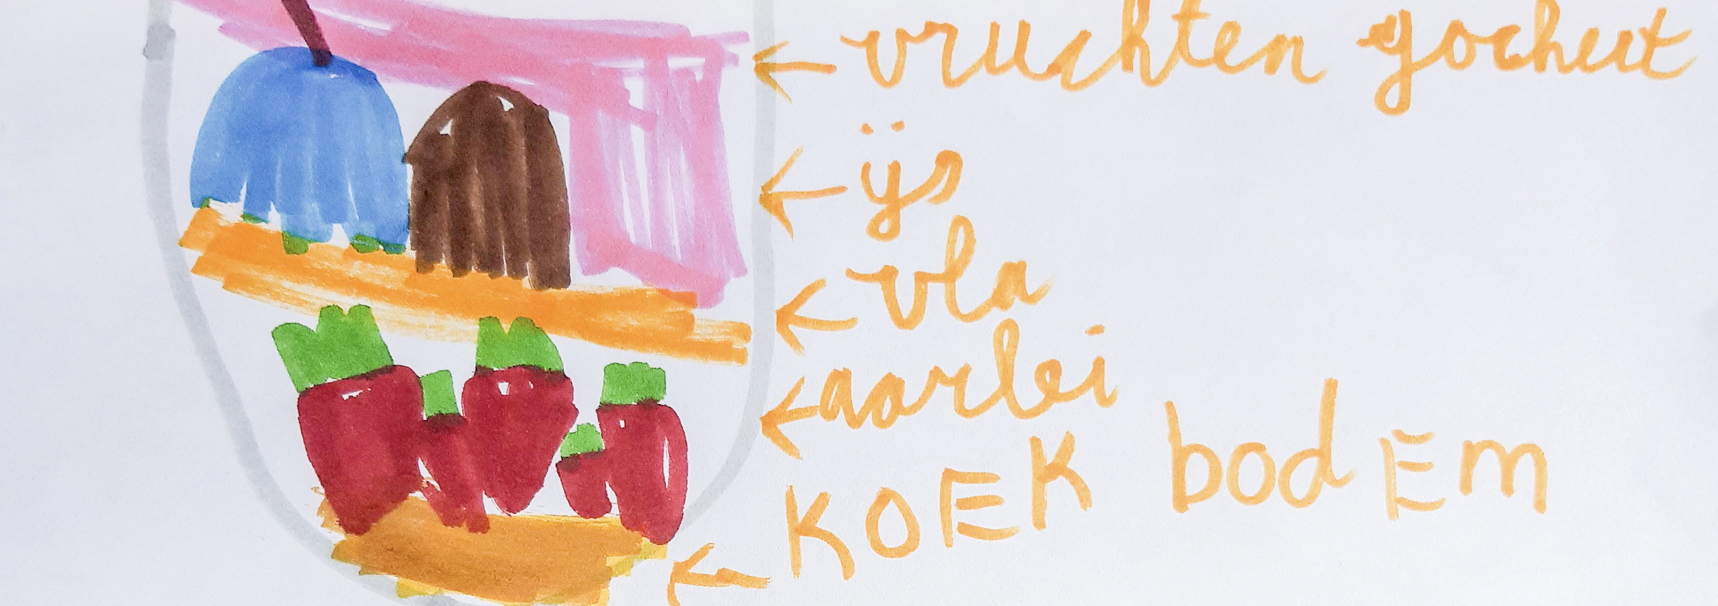 vruchten gochurt
ijs
vla
aarbei
KOEK bodEm